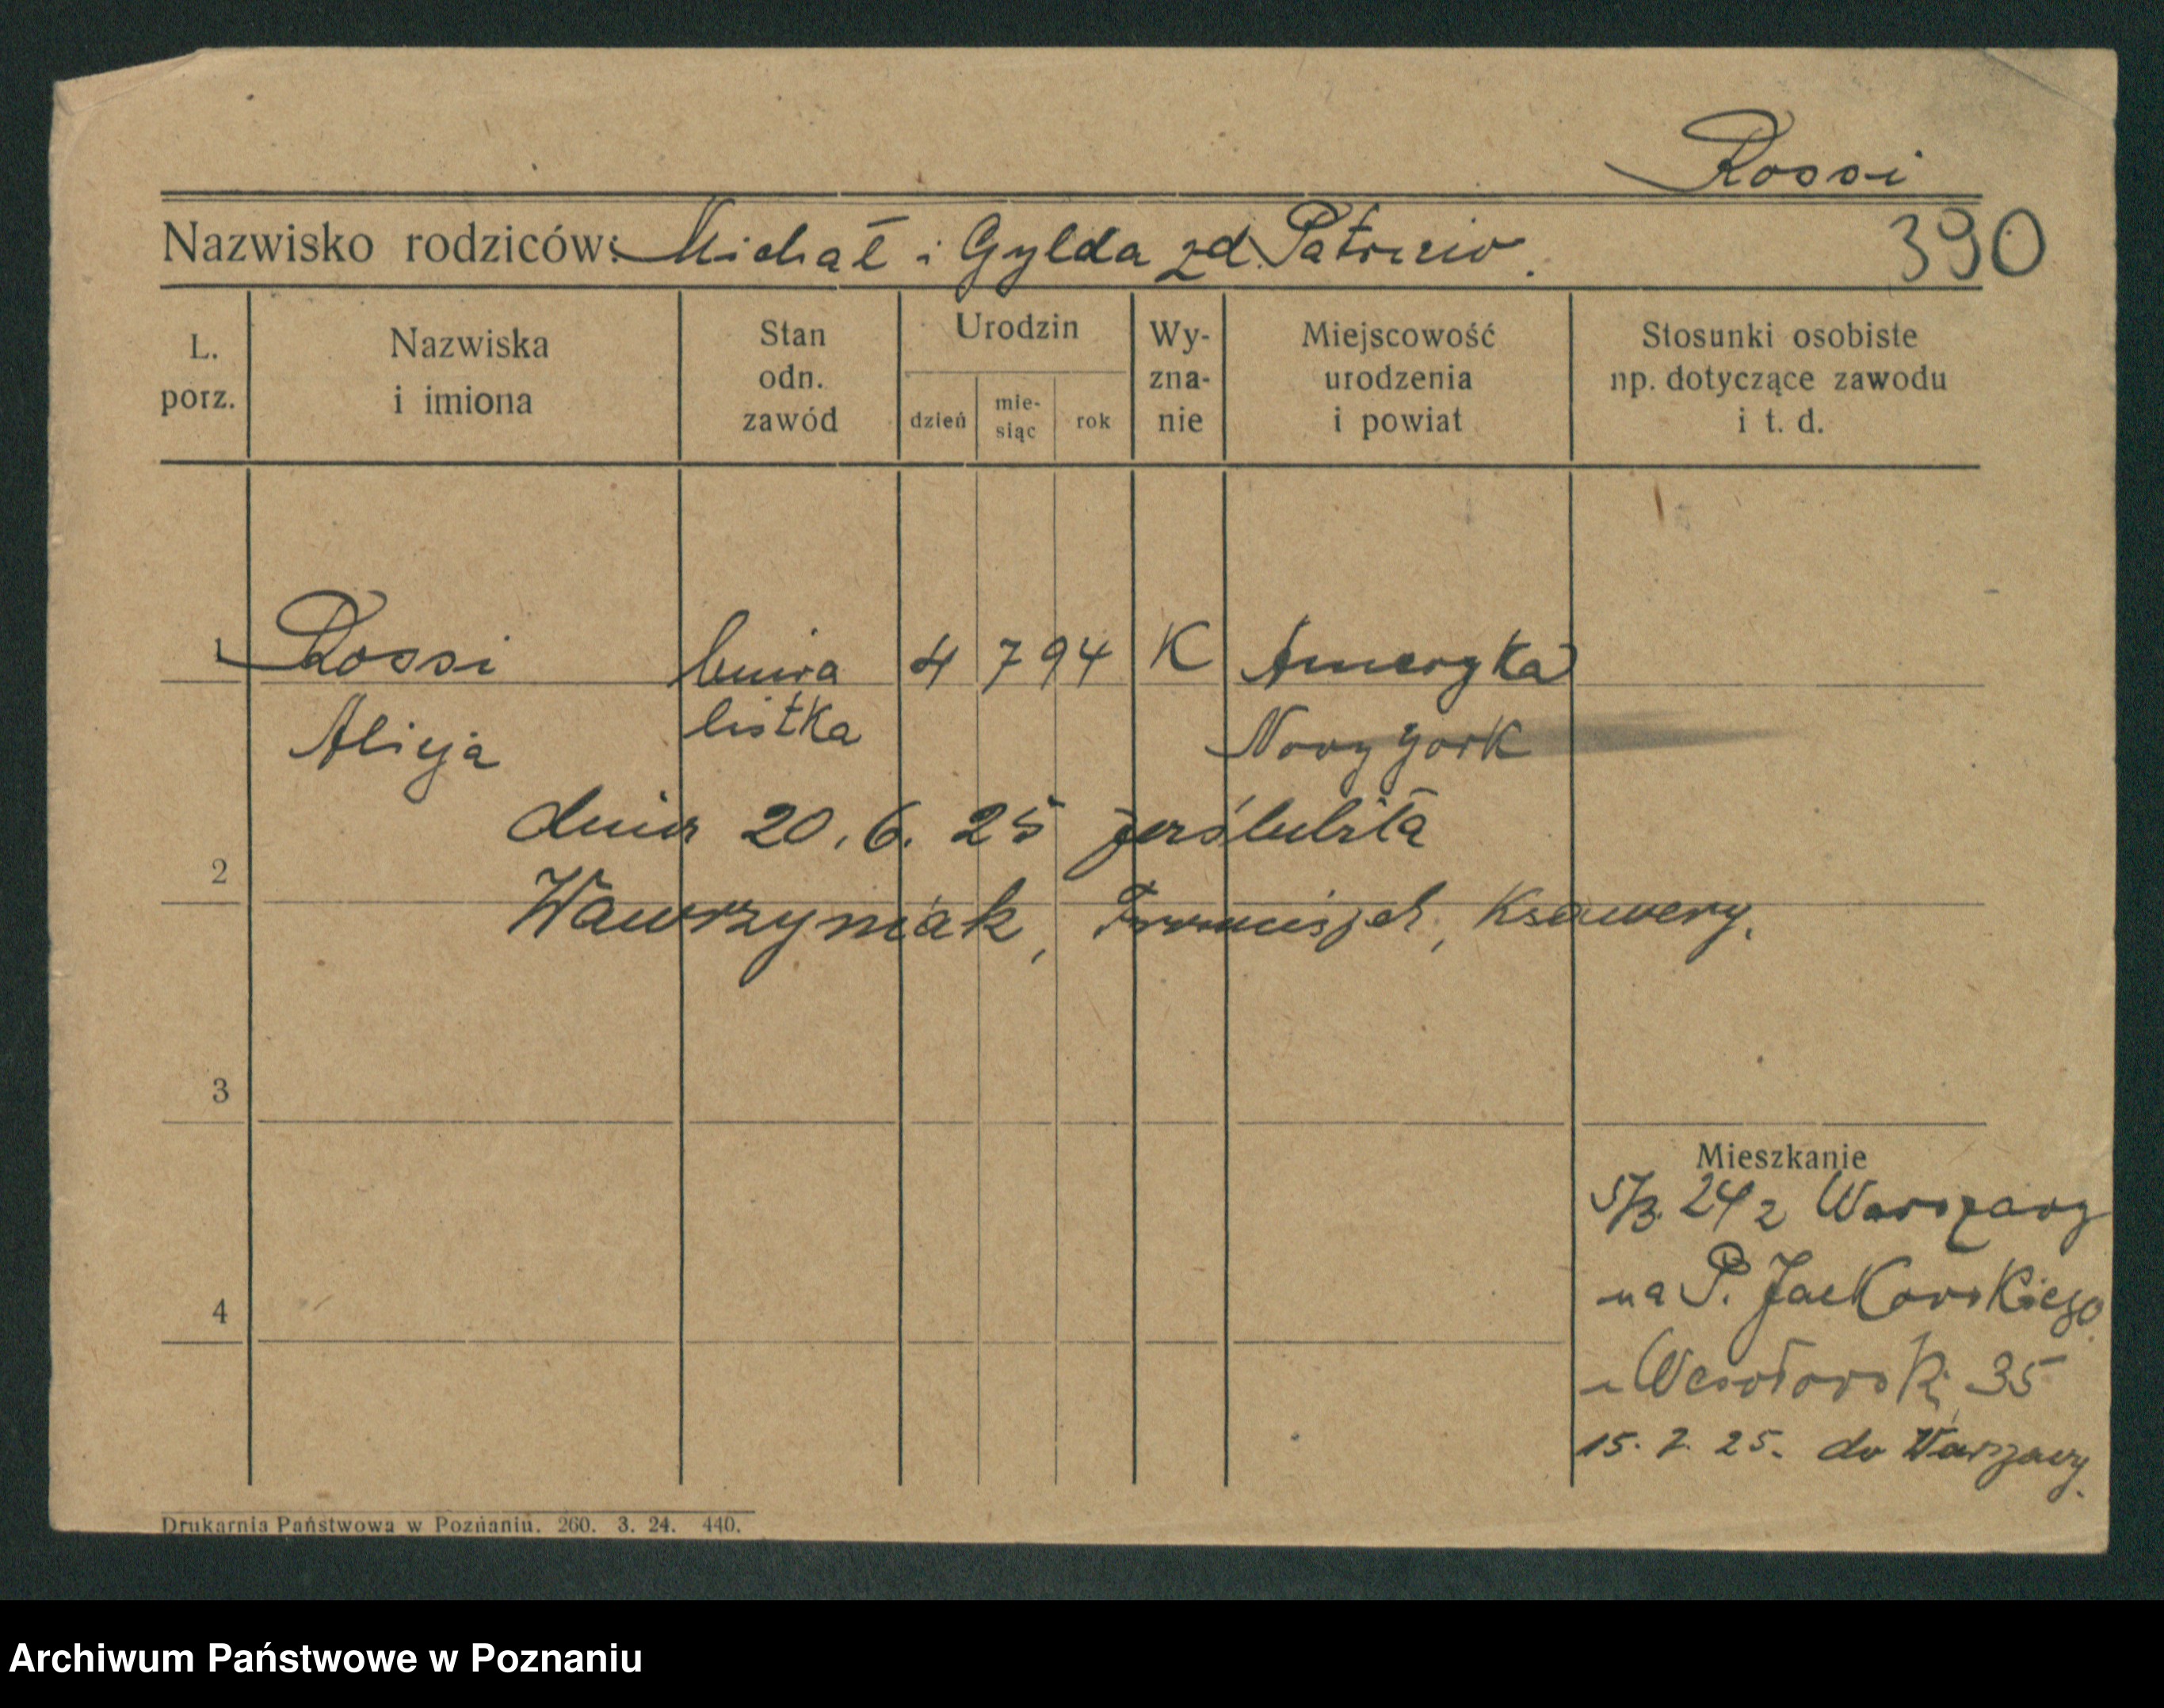 Rossi
Nazwisko rodziców: Michał i Gylda zd. Patrizio.
390
L. porz.
Nazwiska i imiona
Stan odn. zawód
Urodzin
dzień
mie-siąc
rok
Wy-zna-nie
Miejscowość urodzenia i powiat
Stosunki osobiste np. dotyczące zawodu i t. d.
1 Rossi 4 7 94 K Ameryka
Alicja listka Nowy York
dnia 20. 6. 25 zaślubiła
2
Wawrzyniak, Franciszek, Ksawery.
3
Mieszkanie
5/3. 24 z Warszawy
na P. Jackowskiego
4
35
15. 7. 25. do Warszawy.
Drukarnia Państwowa w Poznaniu. 260. 3. 24. 440.
Archiwum Państwowe w Poznaniu